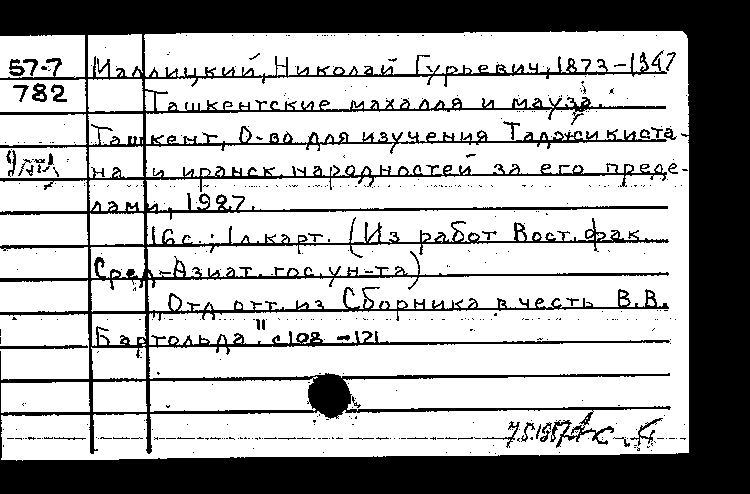 57-7 Маллицкий, Николай Гурьевич, 1873-1947
782 Ташкентские махалля и мауза.
Ташкент, О-во для изучения Таджикиста-
на и иранск. народностей за его преде-
лами, 1927.
16 с.; 1 л. карт. (Из работ Вост. фак.
Сред-Азиат. гос. ун-та)
"Отд. отт. из Сборника в честь В.В.
Бартольда" с 108-121